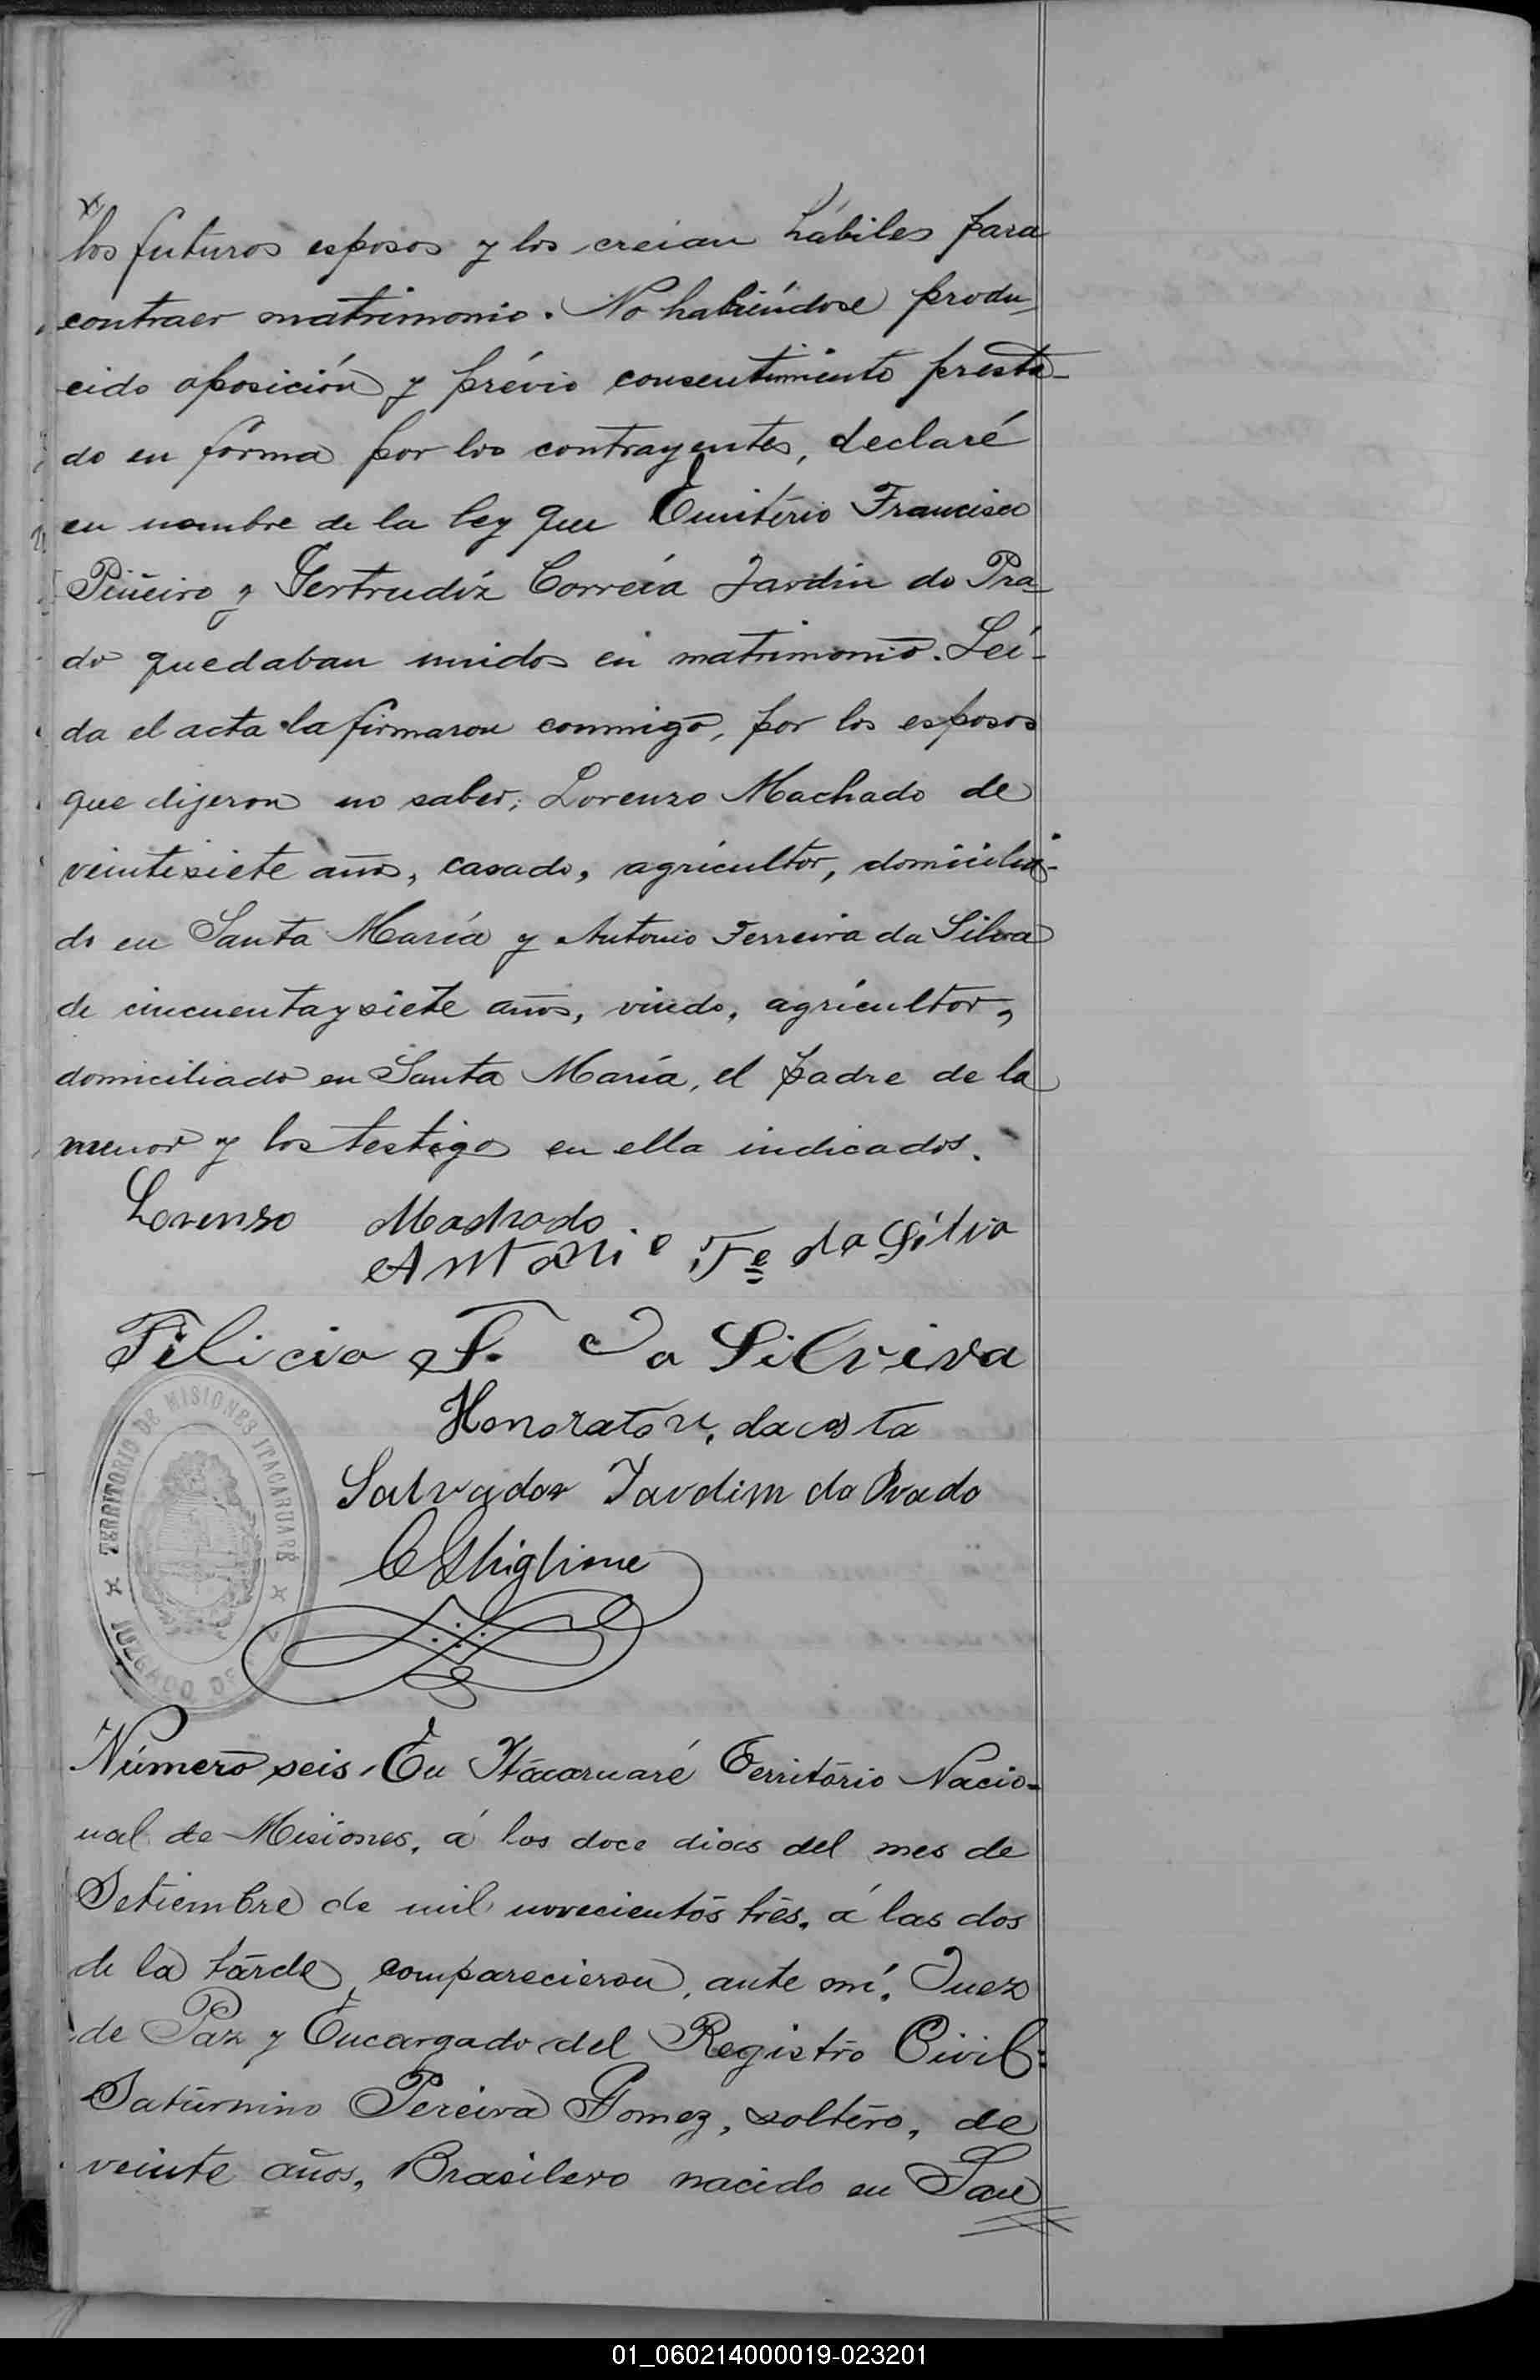 los futuros esposos y los creian hábiles para
contraer matrimonio. No habiéndose produ-
cido oposición y prévio consentimiento presta-
do en forma por los contrayentes, declaré
en nombre de la ley que Emitério Francisco
Piñeiro y Gertrudiz Correia Jardin do Pra-
do quedaban unidos en matrimonio. Leí-
da el acta la firmaron conmigo, por los esposos
que dijeron no saber, Lorenzo Machado de
veintisiete años, casado, agricultor, domicilia-
do en Santa María y Antonio Ferreira da Silva
de cincuentaysiete años, viudo, agricultor,
domiciliado en Santa María, el padre de la
menor y los testigos en ella indicados.
Lorenso Machado
Antonio Fe da Silva
Filicio F. da Silveira
Honorato da costa
Salvador Jardim do Prado
C Ghiglione
TERRITORIO DE MISIONES ITACARUARÉ
JUZGADO DE
Número seis. En Itacaruaré Territorio Nacio-
nal de Misiones, á los doce dias del mes de
Setiembre de mil novecientos tres, á las dos
de la tarde, comparecieron, ante mí, Juez
de Paz y Encargado del Registro Civil:
Saturnino Pereira Gomez, soltero, de
veinte años, Brasilero nacido en San
01_060214000019-023201